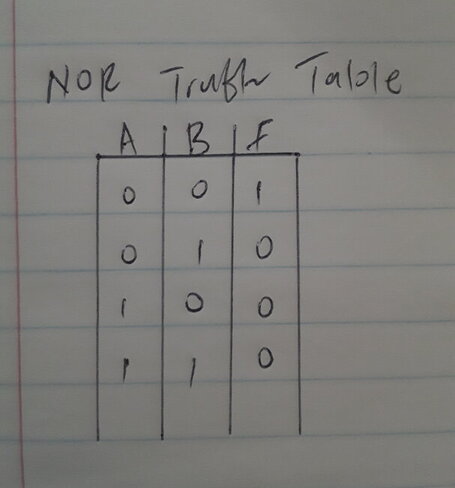 NOR Truth Table
A B F
0 0 1
0 1 0
1 0 0
1 1 0